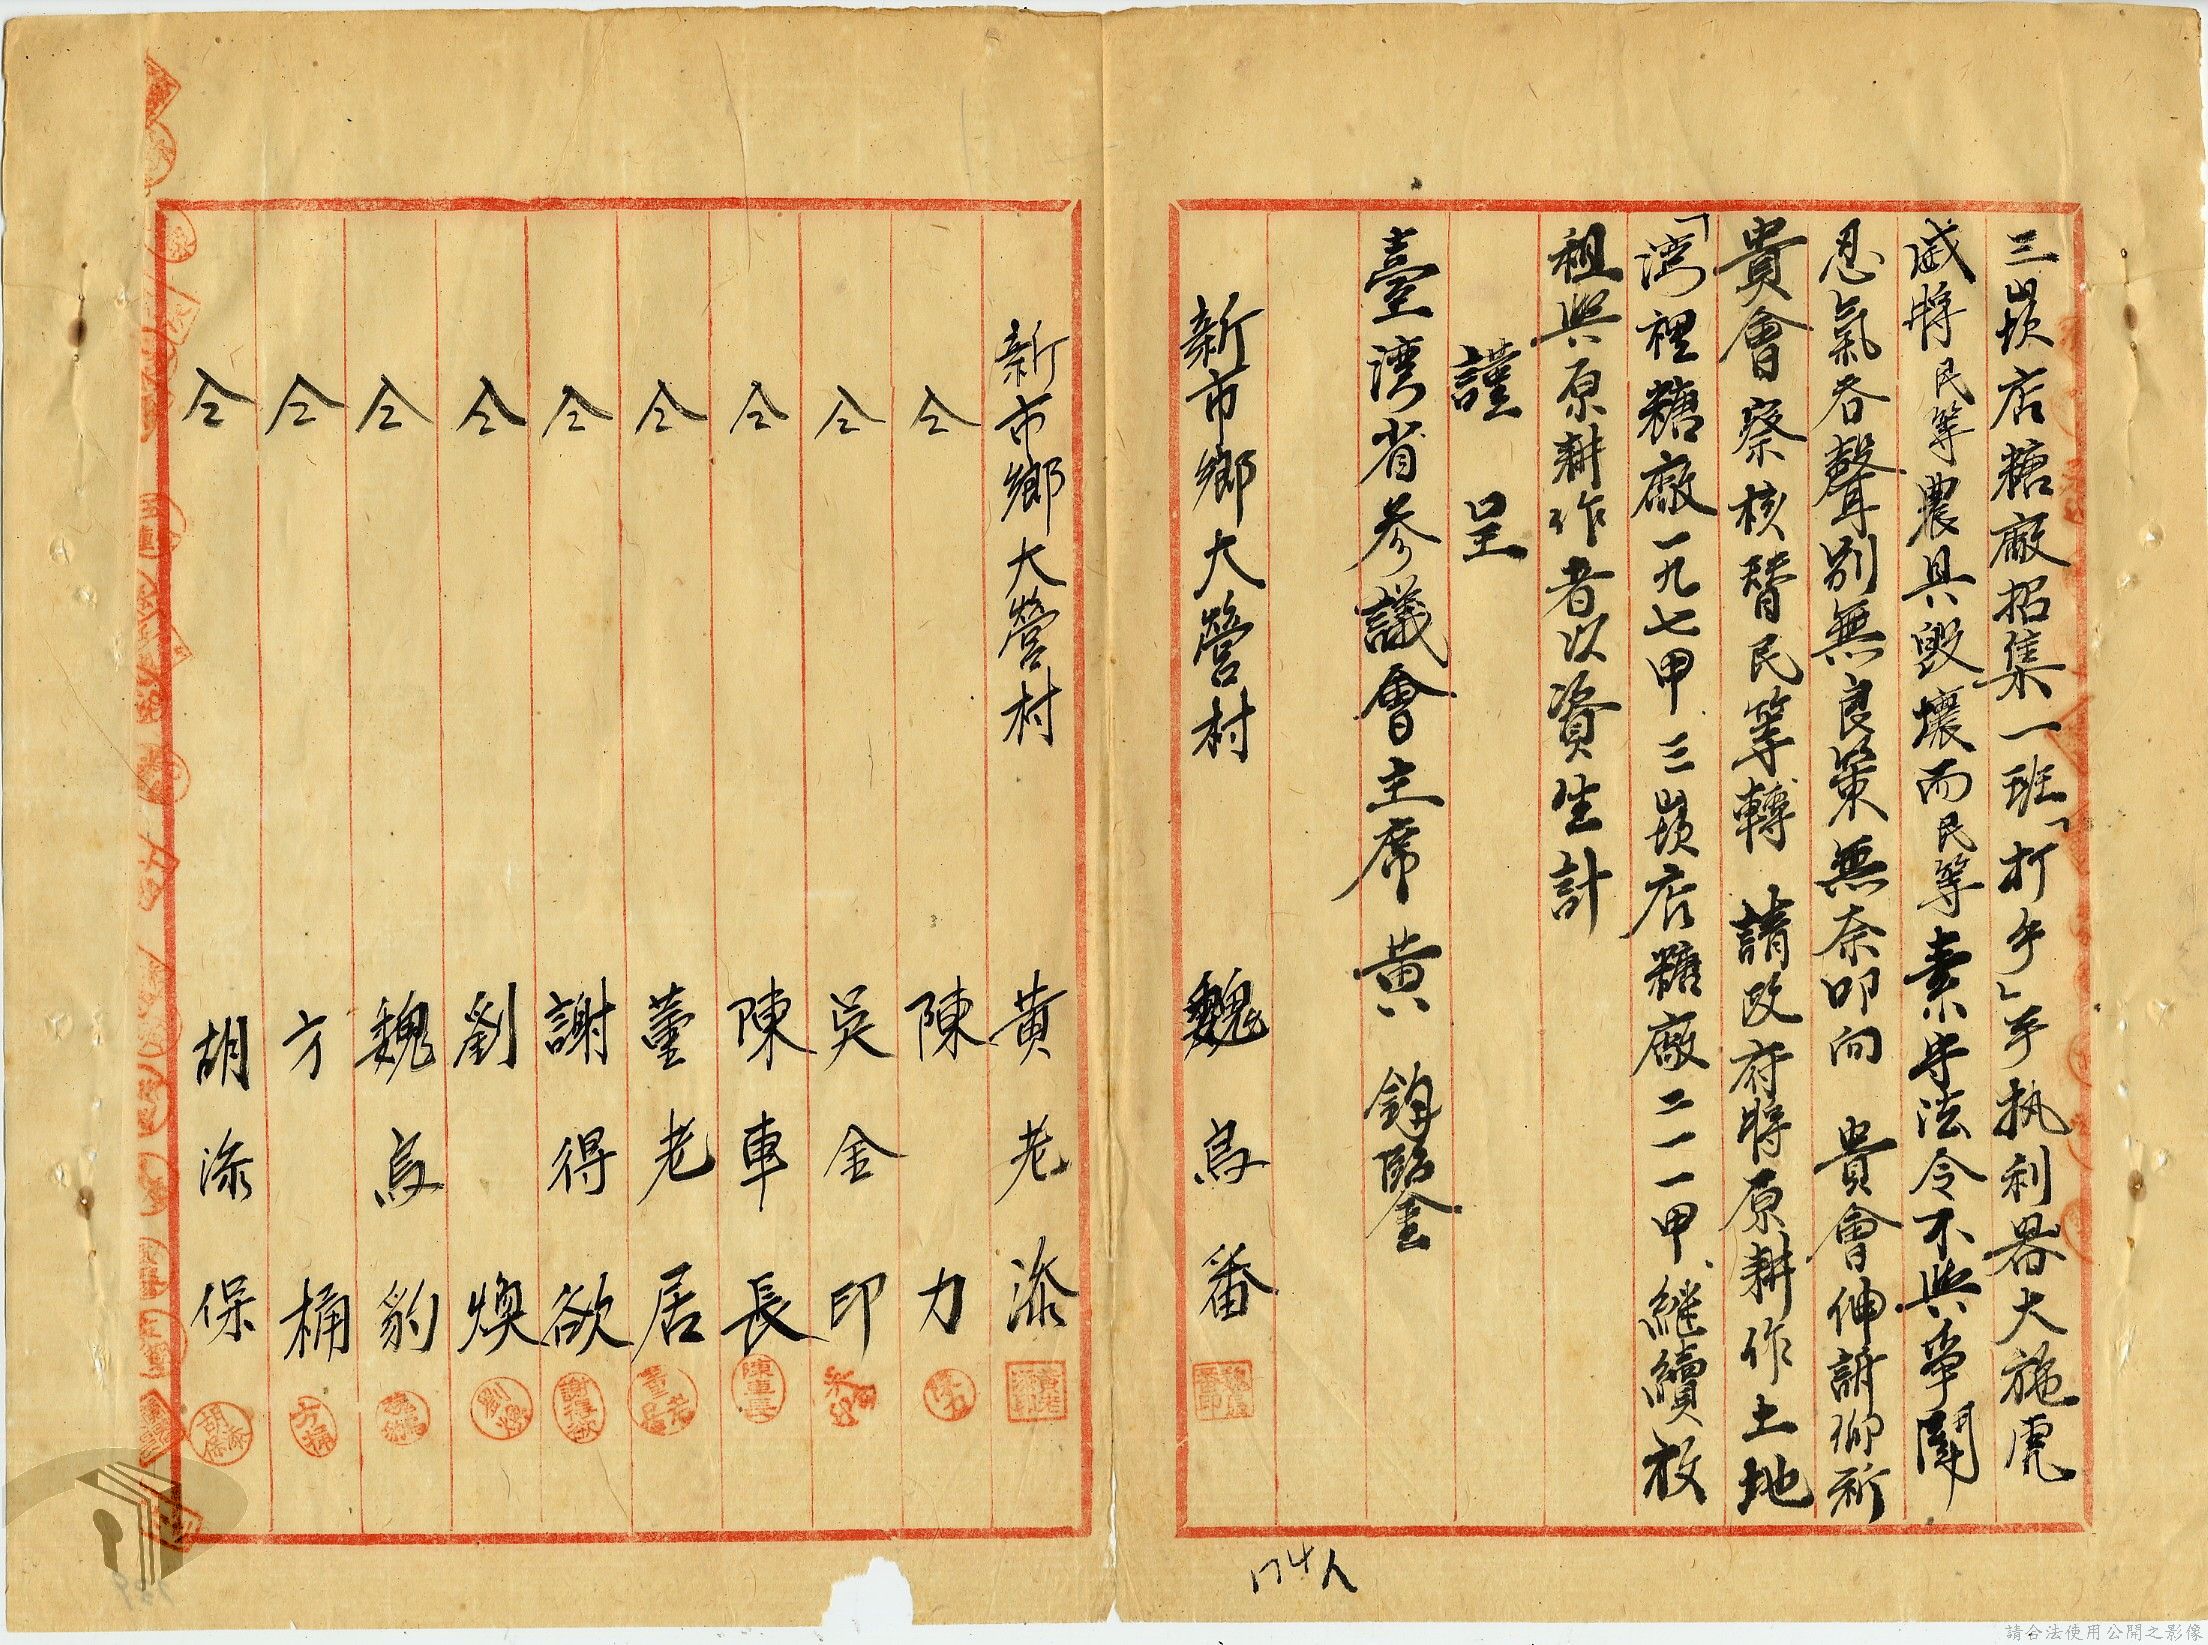 三崁店糖廠招集一班「打手」手执利器大施虎
威將民等農具毀壞而民等素守法令不與爭鬪
忍氣吞聲別無良策無奈叩向　貴會伸訴仰祈
貴會察核替民等轉　請政府將原耕作土地
「湾裡糖廠一九七甲、三崁店糖廠二一一甲、継續放
租與原耕作者以資生計
謹　呈
臺湾省參議會主席　黃　鈞鑒
新市鄉大營村　魏烏番
新市鄉大營村　黃老添
仝　陳力
仝　吳金印
仝　陳車長
仝　董老居
仝　謝得欲
仝　劉煥
仝　魏烏豹
仝　方桶
仝　胡添保
陳車長
謝得欲
劉煥
方桶
胡添保
174人
請合法使用公開之影像